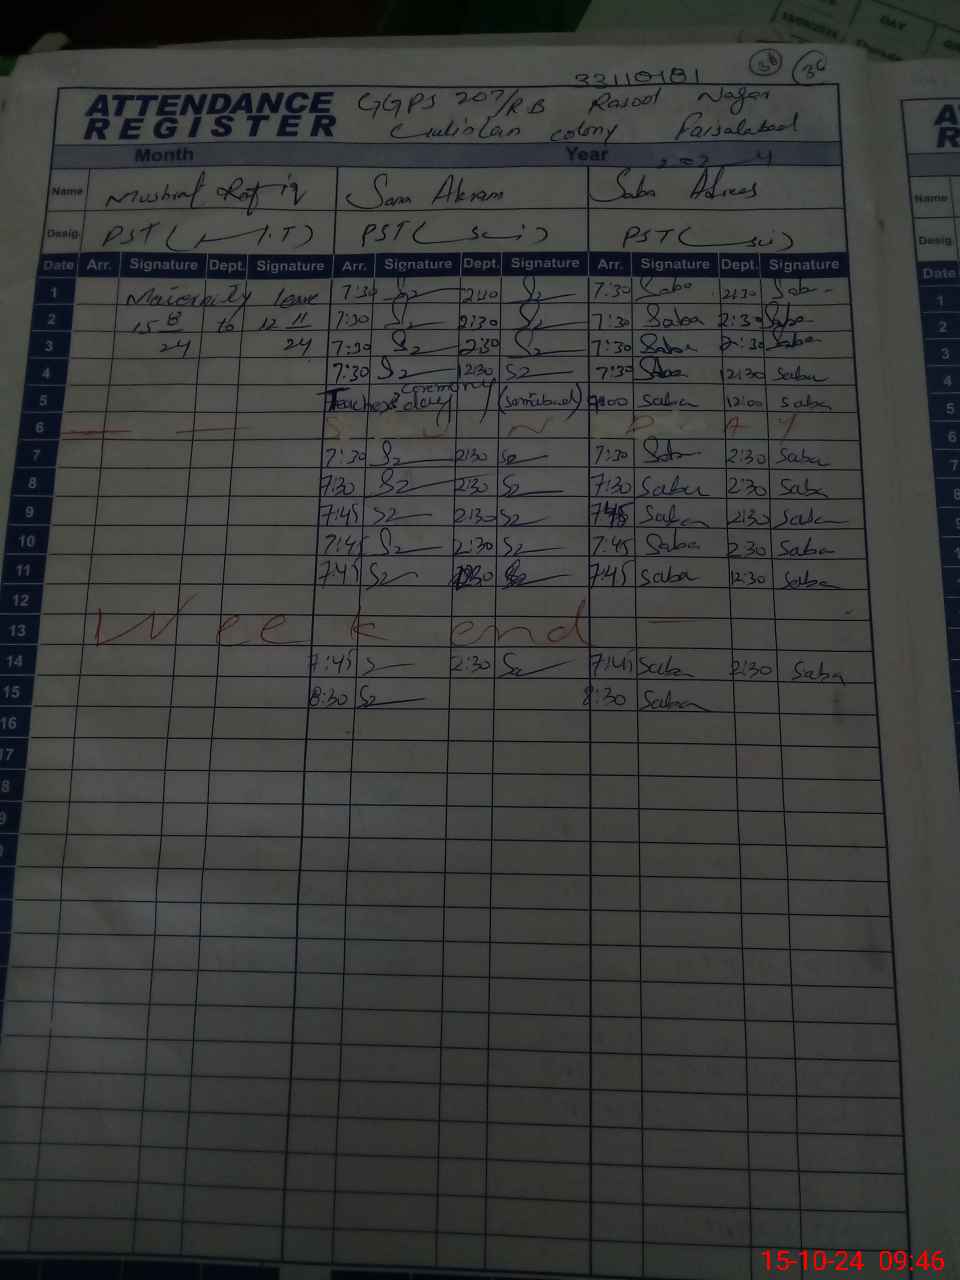 33110181 36 36
ATTENDANCE REGISTER GGPS 207/RB Rasool Nagar
colony Faisalabad
Month Year
Name Mushraf Rafiq Sana Akram Saba
Desig. PST ( PST ( sci ) PST ( sci )
Date Arr. Signature Dept. Signature Arr. Signature Dept. Signature Arr. Signature Dept. Signature
1 leave 7:30 S2 2:30 S2 7:30 Saba 2:30 Saba
2 15 8 to 12 11 7:30 S2 2:30 S2 7:30 Saba 2:30 Saba
3 24 24 7:30 S2 2:30 S2 7:30 Saba 2:30 Saba
4 7:30 S2 12:30 S2 7:30 Saba 12:30 Saba
5 Teachers day ceremony Saba 12:00 Saba
6 S U N D A Y
7 7:30 S2 2:30 S2 7:30 Saba 2:30 Saba
8 7:30 S2 2:30 S2 7:30 Saba 2:30 Saba
9 7:45 S2 2:30 S2 7:45 Saba 2:30 Saba
10 7:45 S2 2:30 S2 7:45 Saba 2:30 Saba
11 7:45 S2 S2 7:45 Saba 12:30 Saba
12
13 Week end
14 7:45 S 2:30 S2 7:45 Saba 2:30 Saba
15 8:30 S2 8:30 Saba
16
17
8
9
15-10-24 09:46